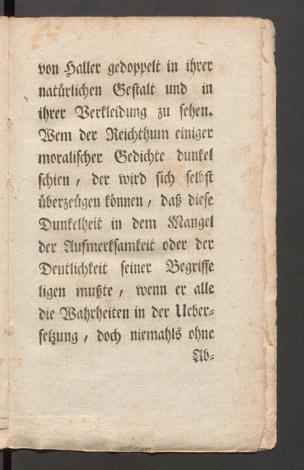 von Haller gedoppelt in ihrer
natürlichen Gestalt und in
ihrer Verkleidung zu sehen.
Wem der Reichthum einiger
moralischer Gedichte dunkel
schien, der wird sich selbst
überzeügen können, daß diese
Dunkelheit in dem Mangel
der Aufmerksamkeit oder der
Deutlichkeit seiner Begriffe
ligen mußte, wenn er alle
die Wahrheiten in der Ueber-
setzung, doch niemahls ohne
Ab-